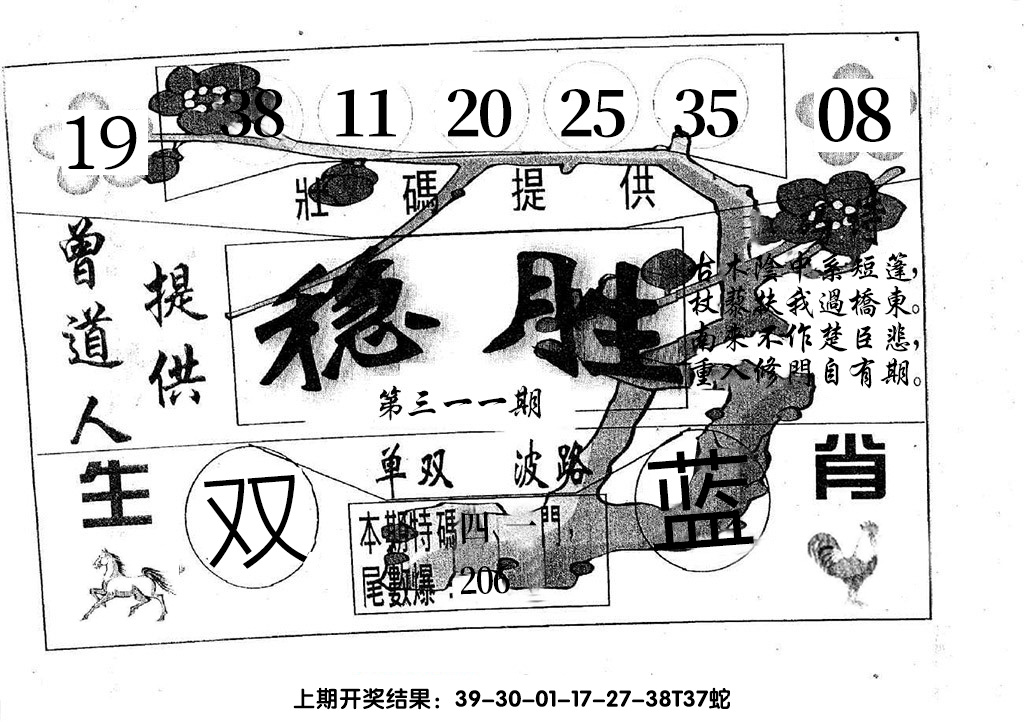 19 38 11 20 25 35 08
壯碼提供
特
曾道人
提供
稳胜
第三一一期
古木陰中系短篷，
杖藜扶我過橋東。
南来不作楚臣悲，
重入修門自有期。
单双 波路
生肖
双
蓝
本期特碼四、一門，
尾數爆：206
上期开奖结果：39-30-01-17-27-38T37蛇